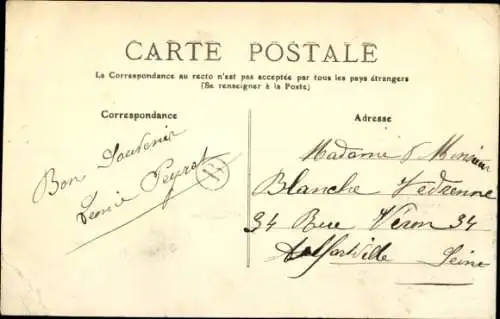 CARTE POSTALE
La Correspondance au recto n'est pas acceptée par tous les pays étrangers
(Se renseigner à la Poste)
Correspondance
Bon Souvenir
Leonie Peyrat
B
Adresse
Madame & Monsieur
Blanche Védrenne
34 Rue Véron 34
Alfortville Seine